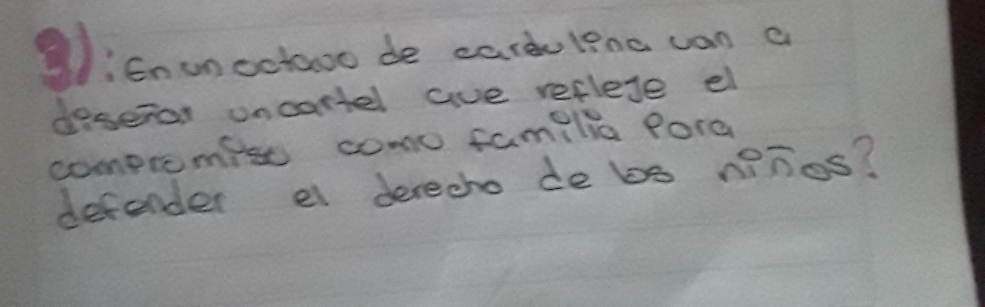 3): En un octavo de cardulina van a
diseñar un cartel que refleje el
compromiso como familia para
defender el derecho de los niños?